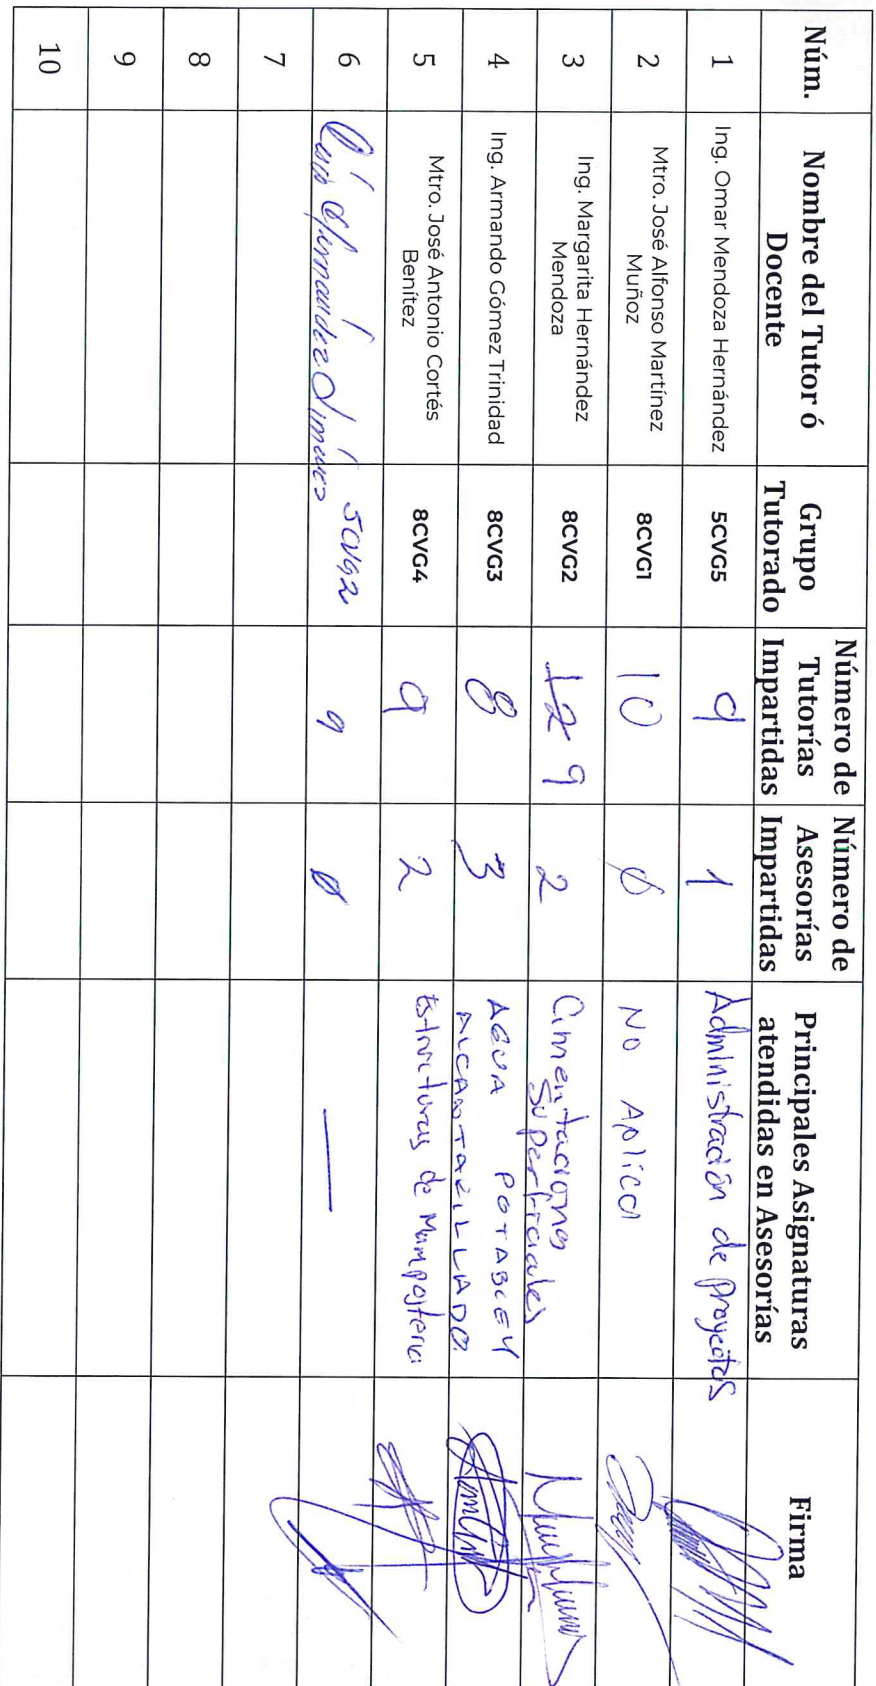 Núm. Nombre del Tutor ó Docente Grupo Tutorado Número de Tutorías Impartidas Número de Asesorías Impartidas Principales Asignaturas atendidas en Asesorías Firma
1 Ing. Omar Mendoza Hernández 5CVG5 9 1 Administración de proyectos
2 Mtro. José Alfonso Martínez Muñoz 8CVG1 10 0 No Aplica
3 Ing. Margarita Hernández Mendoza 8CVG2 12 9 2 Cimentaciones Superficiales
4 Ing. Armando Gómez Trinidad 8CVG3 8 3 AGUA POTABLE Y ALCANTARILLADO
5 Mtro. José Antonio Cortés Benítez 8CVG4 9 2 Estructuras de Mampostería
6 Hernández Jiménez 5CVG2 9 0 —
7
8
9
10